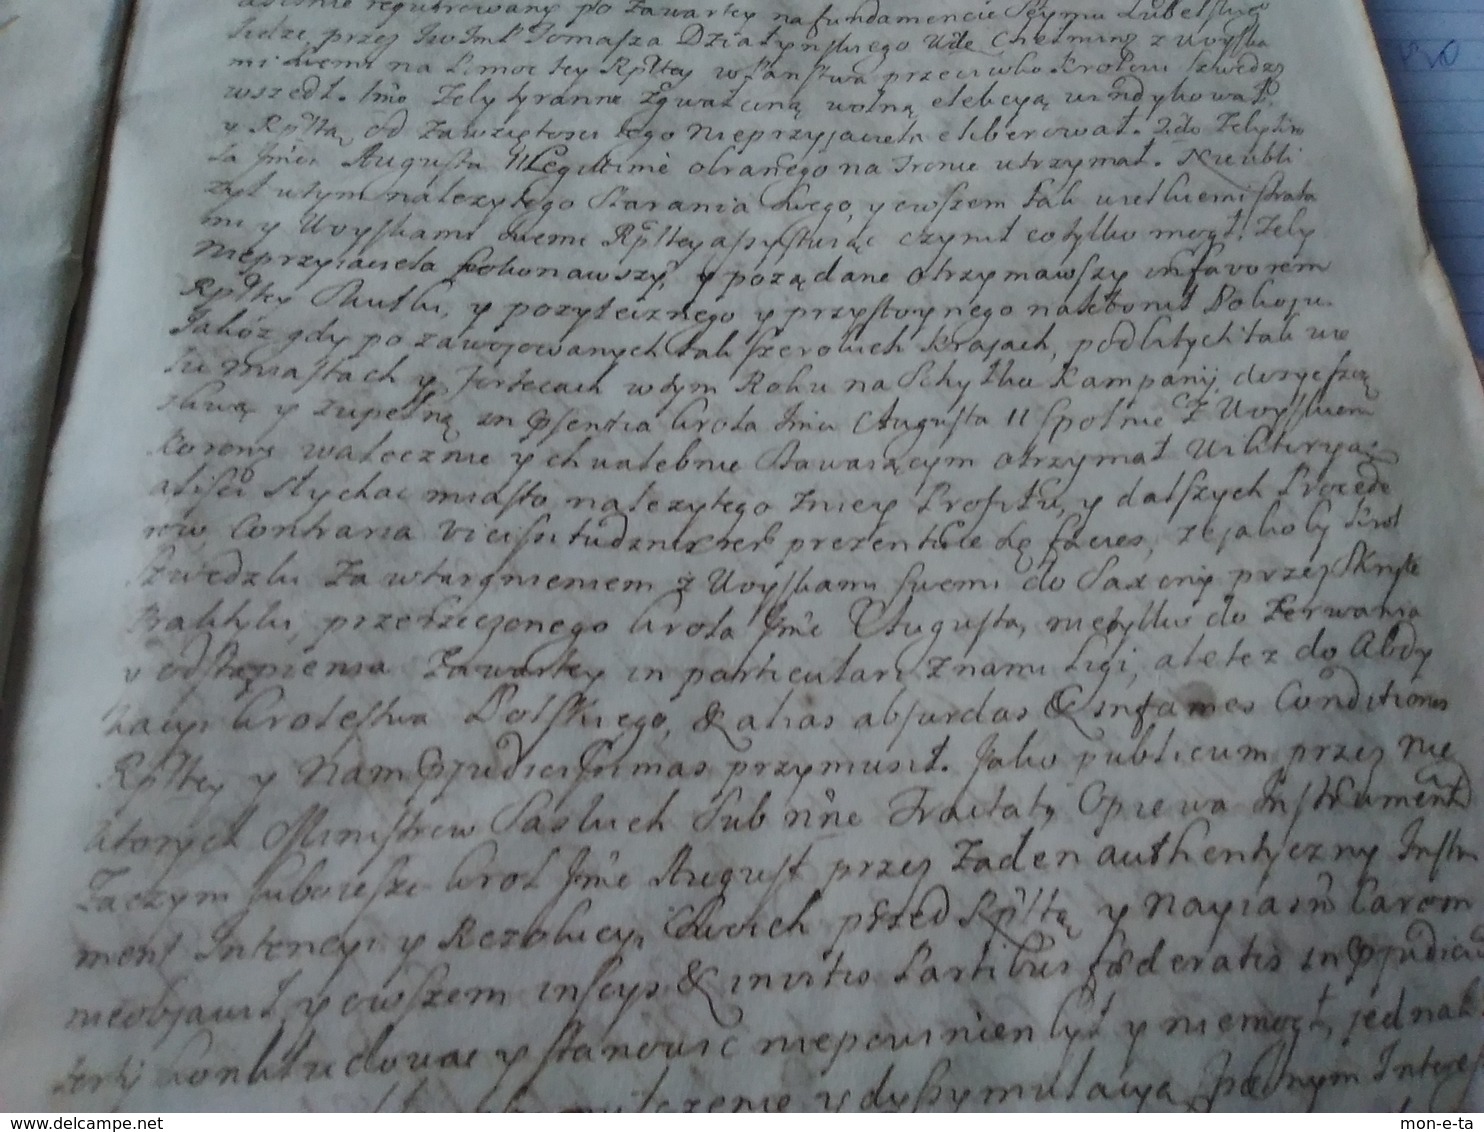 regutrowany po Zawartey na fundamencie Seymu Lubelskieo
ludzi przez JwImć Tomasza Działynskiego Wde Chełminо z Woyska
mi swemi na Pomoc tey Rpltey w Panstwa przeciwko Krolowi Szwedzo
wszedł. Imo Zeby tyranne Zgwałconą wolną elekcyą windykował
y Rpltą od Zawziętosci tego Nieprzyjaciela eliberował. 2do Zeby Kro
la Jmci Augusta II Legitimè obranego na Tronie utrzymał. Nieubli
zył w tym nalezytego Starania Swego, y owszem tak wielkiemi Strata
mi y Woyskami swemi Rpltey assystuiąc czynił co tylko mogł, Zeby
Nieprzyiaciela pokonawszy, y poządane otrzymawszy in favorem
Rpltey Skutki, y pozytecznego y przystoynego nakłonił Pokoju.
Jakoz gdy po zawojowanych tak szerokich Krajach, podbitych tak wie
lu miastach y Fortecach w tym Roku na Schyłku Kampanij, doszczęszczę
sliwą y zupełną in Psentia Krola Jmci Augusta II spolnie z Woyskiem
Koronn walecznie y chwalebnie stawaiącym otrzymał Wiktoryą
alisci słychac miasto nalezytego zniey Profitu, y dalszych Procede
row Contraria vicissitudinis prezentuie się facies, ze jakoby Krol
Szwedzki Za wtargnieniem z Woyskami swemi do Saxonij przez Skryte
Praktyki, przerzeczonego Krola Jmci Augusta, nietylko do Zerwania
y odstąpienia Zawartey in particulari z nami Ligi, ale tez do Abdy
kacyi Krolestwa Polskiego, & alias absurdas & infames Conditiones
Rpltey y Nam Pjudiciosissimas przymusił. Jako publicum przez nie
ktorych Ministrow Saskich Sub nne Traktatu Opiewa Instrument
Zaczym lubo iesze Krol Jmc August przez Zaden authentyczny Instru
ment Intencyi y Rezolucyi Swoich przed Rpltą y Nayiasn Carem
nieobjawił, y owszem insciis & invitis Partibus fœderatis in Pjudiciu
tertij konkludowac y stanowic niepowinien był y niemogł, jednak
y dyssymulacyą Interess